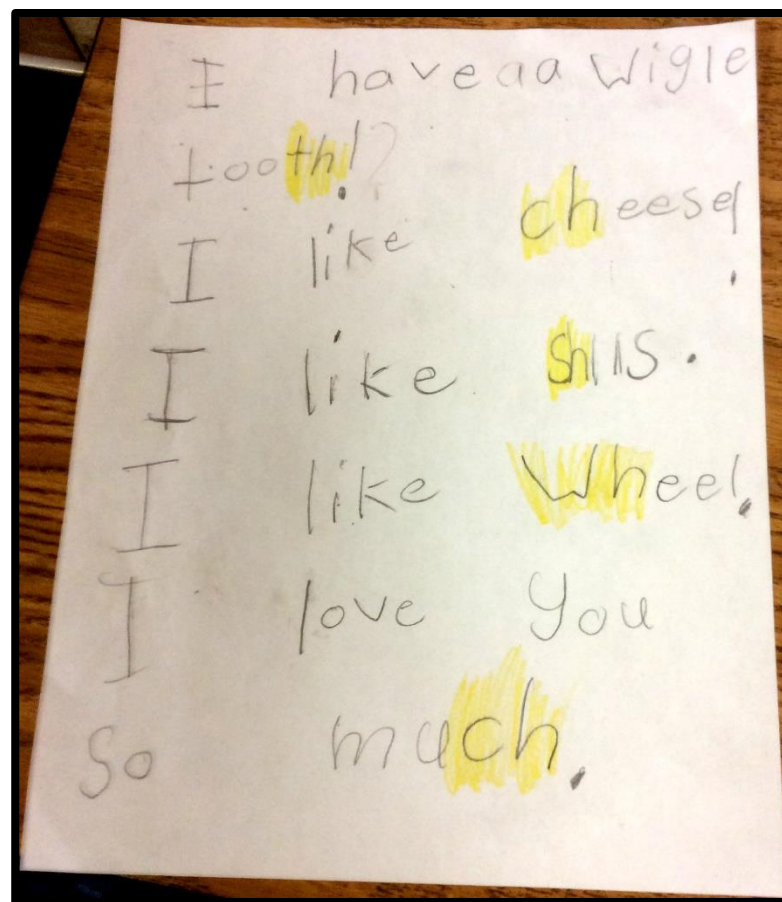 I have aa Wigle
tooth!?
I like cheese.
I like ShllS.
I like Wheel.
I love you
So much.